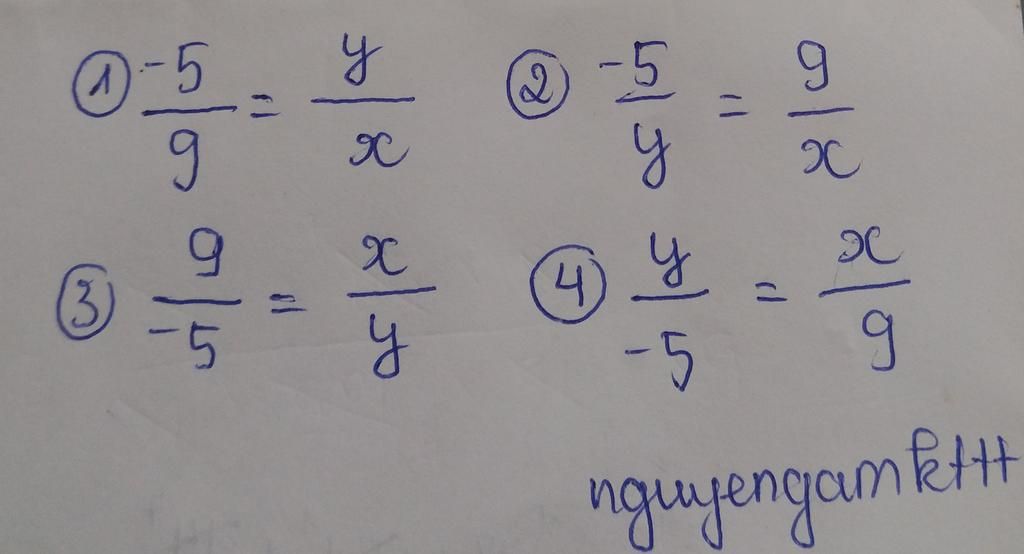 ① -5/9 = y/x ② -5/y = 9/x
③ 9/-5 = x/y ④ y/-5 = x/9
nguyengamkttt